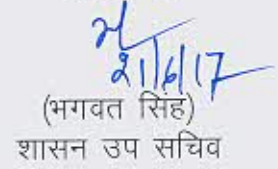 21/6/17
(भगवत सिंह)
शासन उप सचिव